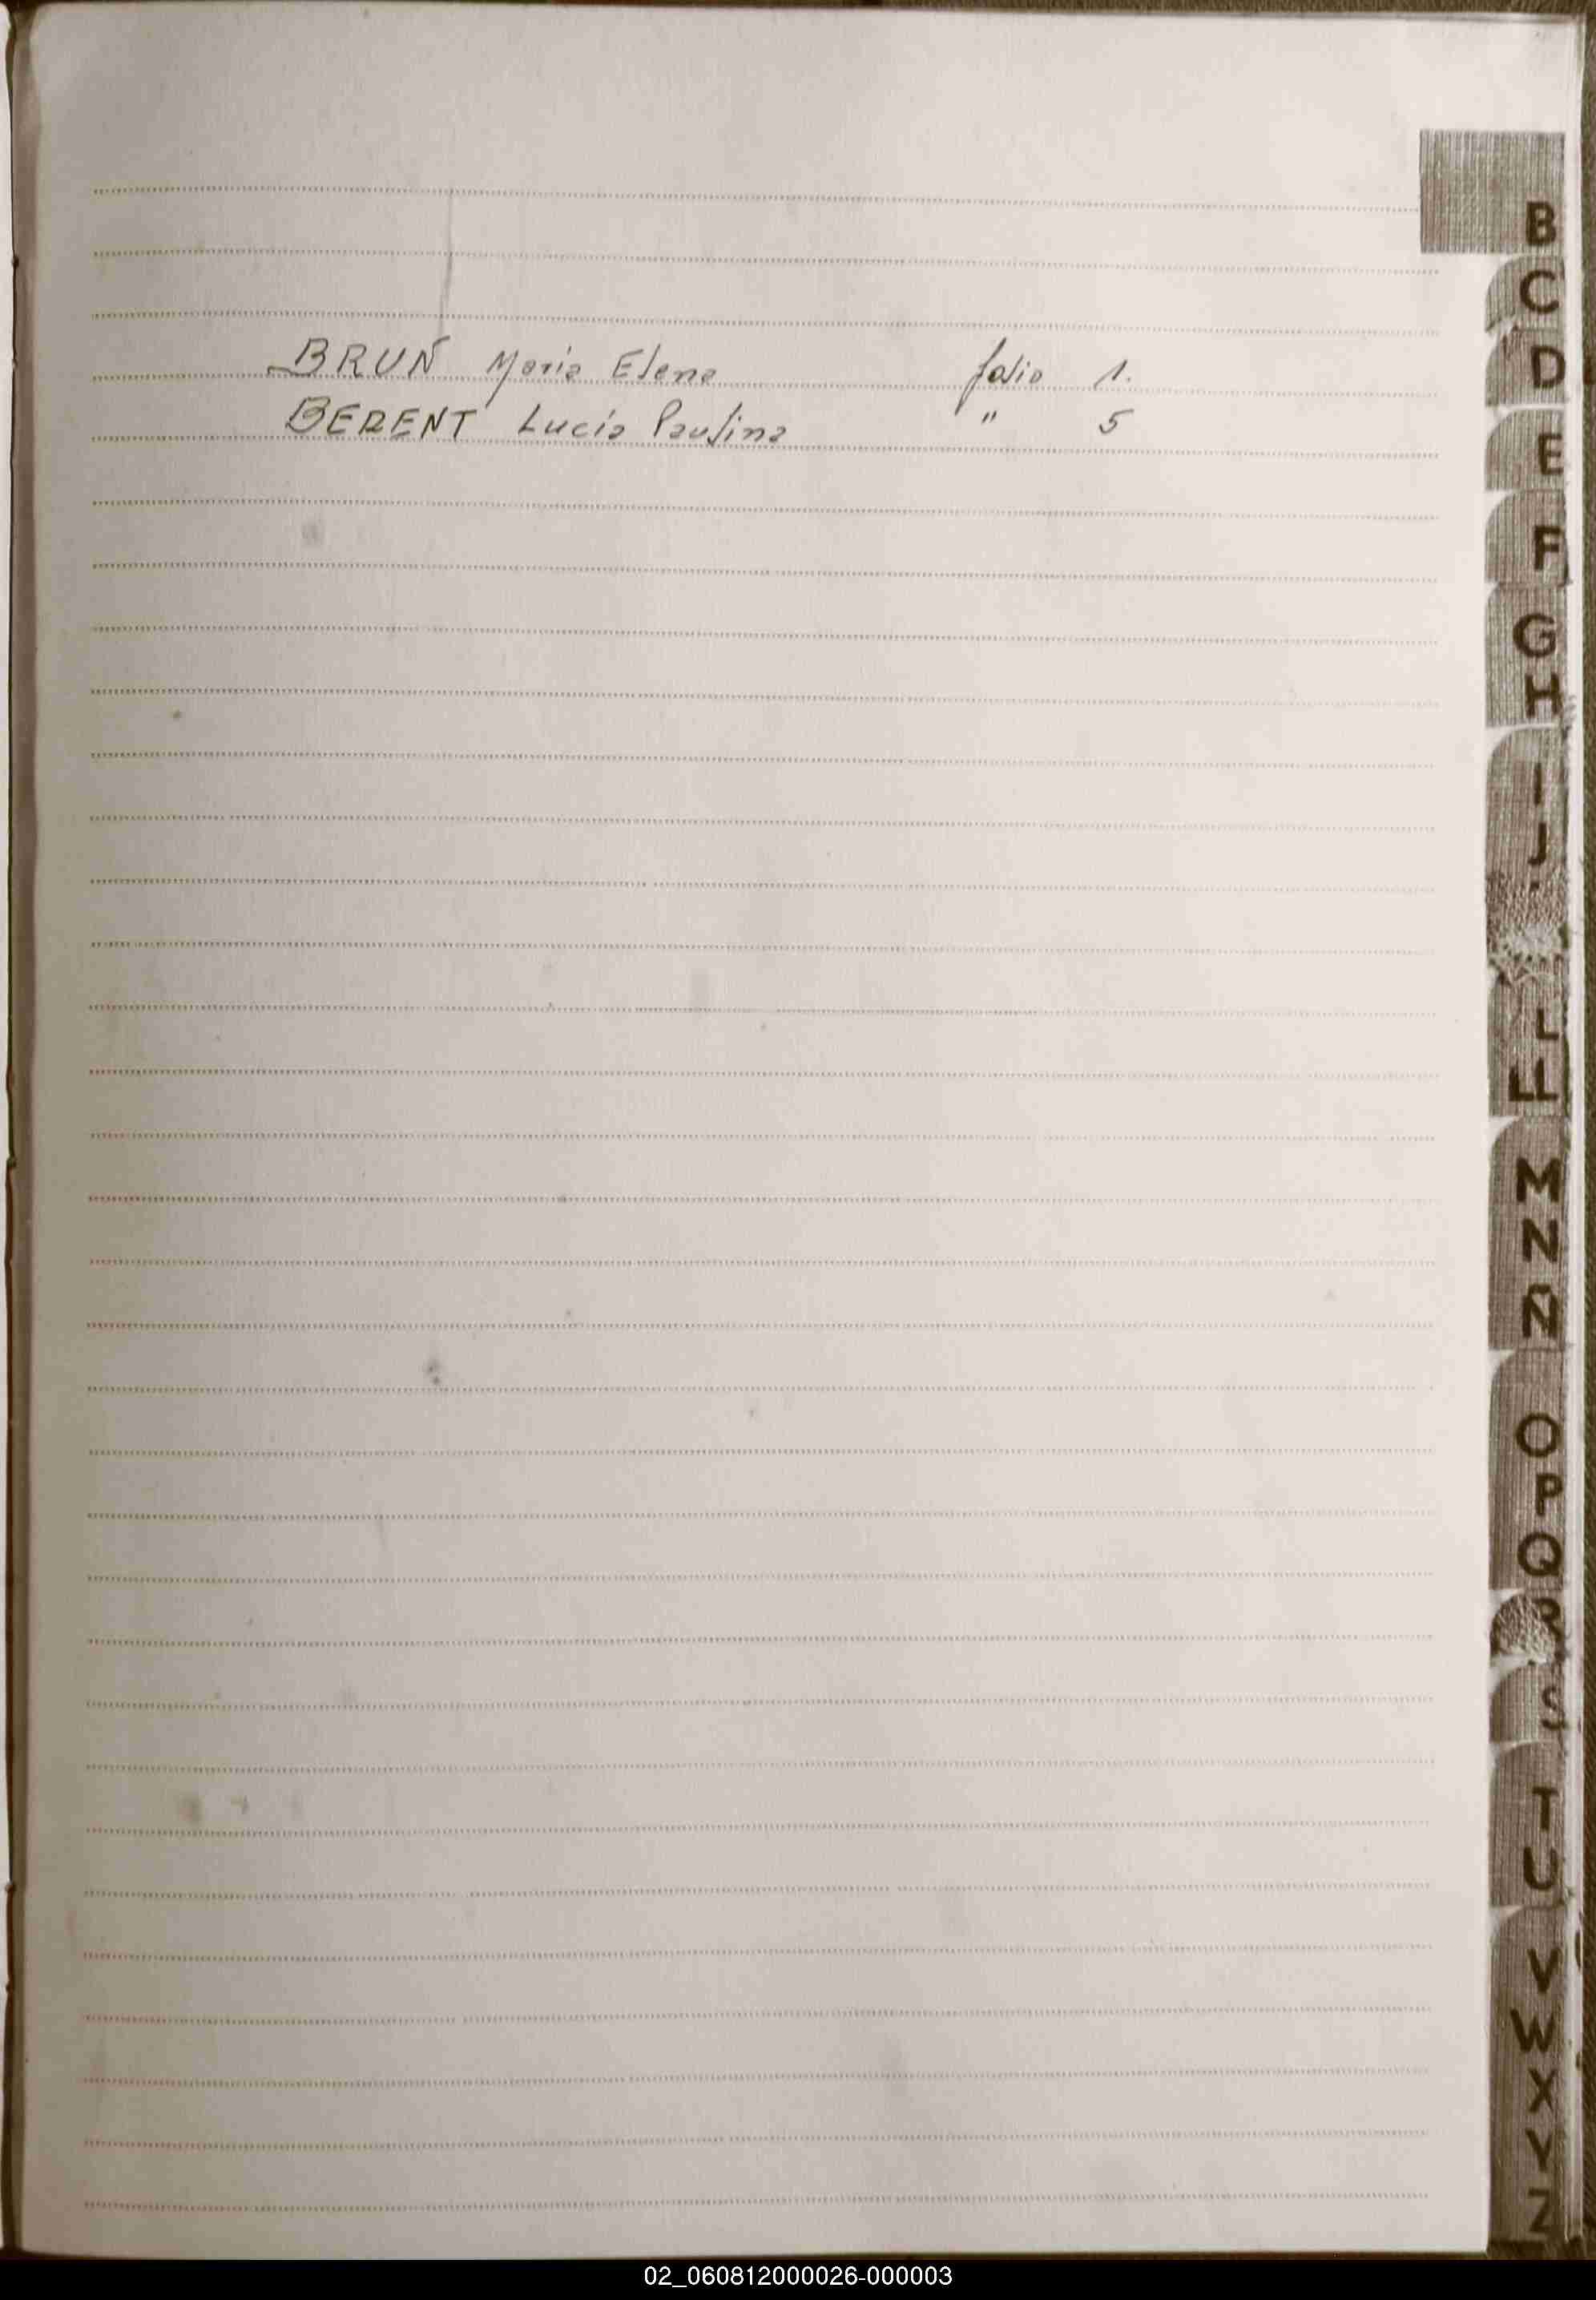 BRUN Maria Elena folio 1.
BERENT Lucía Paulina " 5
B
C
D
E
F
G
H
I
J
L
LL
M
N
Ñ
O
P
Q
R
S
T
U
V
W
X
Y
Z
02_060812000026-000003